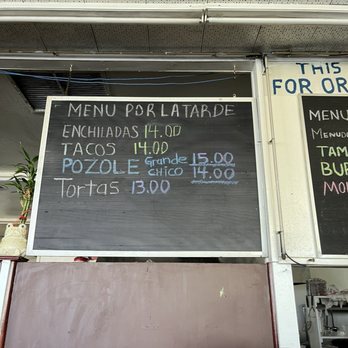 MENU POR LA TARDE
ENCHILADAS 14.00
TACOS 14.00
POZOLE Grande 15.00
CHICO 14.00
Tortas 13.00
THIS
FOR OR
MENU
MENUD
TAM
BUR
MO